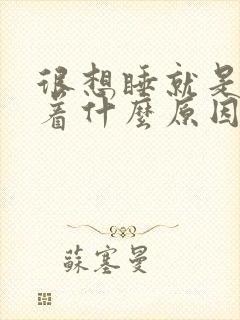 很想睡就是
着什麼原因
蘇塞曼